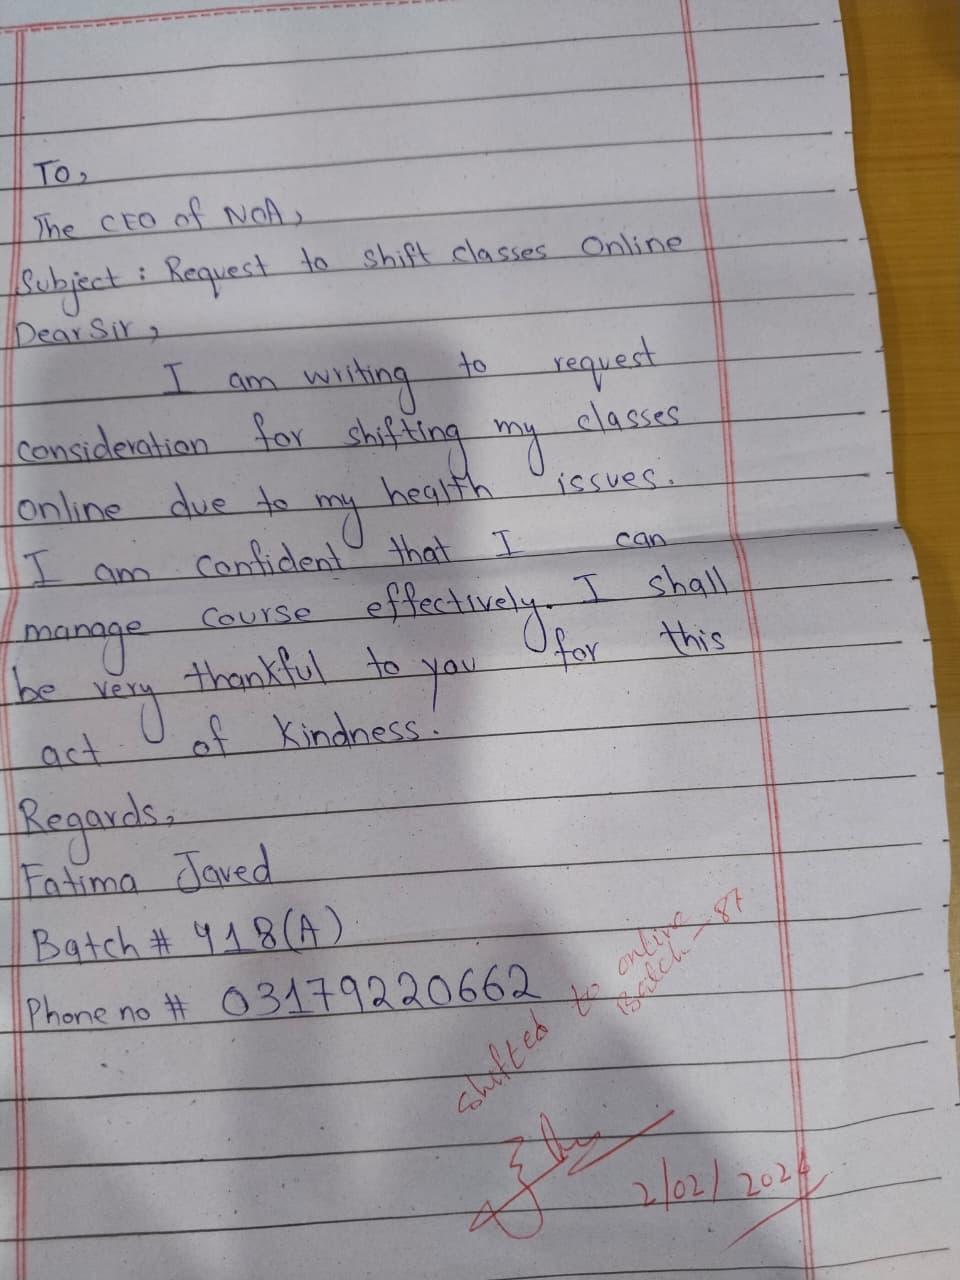 To,
The CEO of NOA,
Subject : Request to shift classes Online
Dear Sir,
I am writing to request
consideration for shifting my classes
online due to my health issues.
I am confident that I can
manage course effectively. I shall
be very thankful to you for this
act of kindness.
Regards,
Fatima Javed
Batch # 418(A)
Phone no # 03179220662
shifted to online
Batch_87
2/02/2024